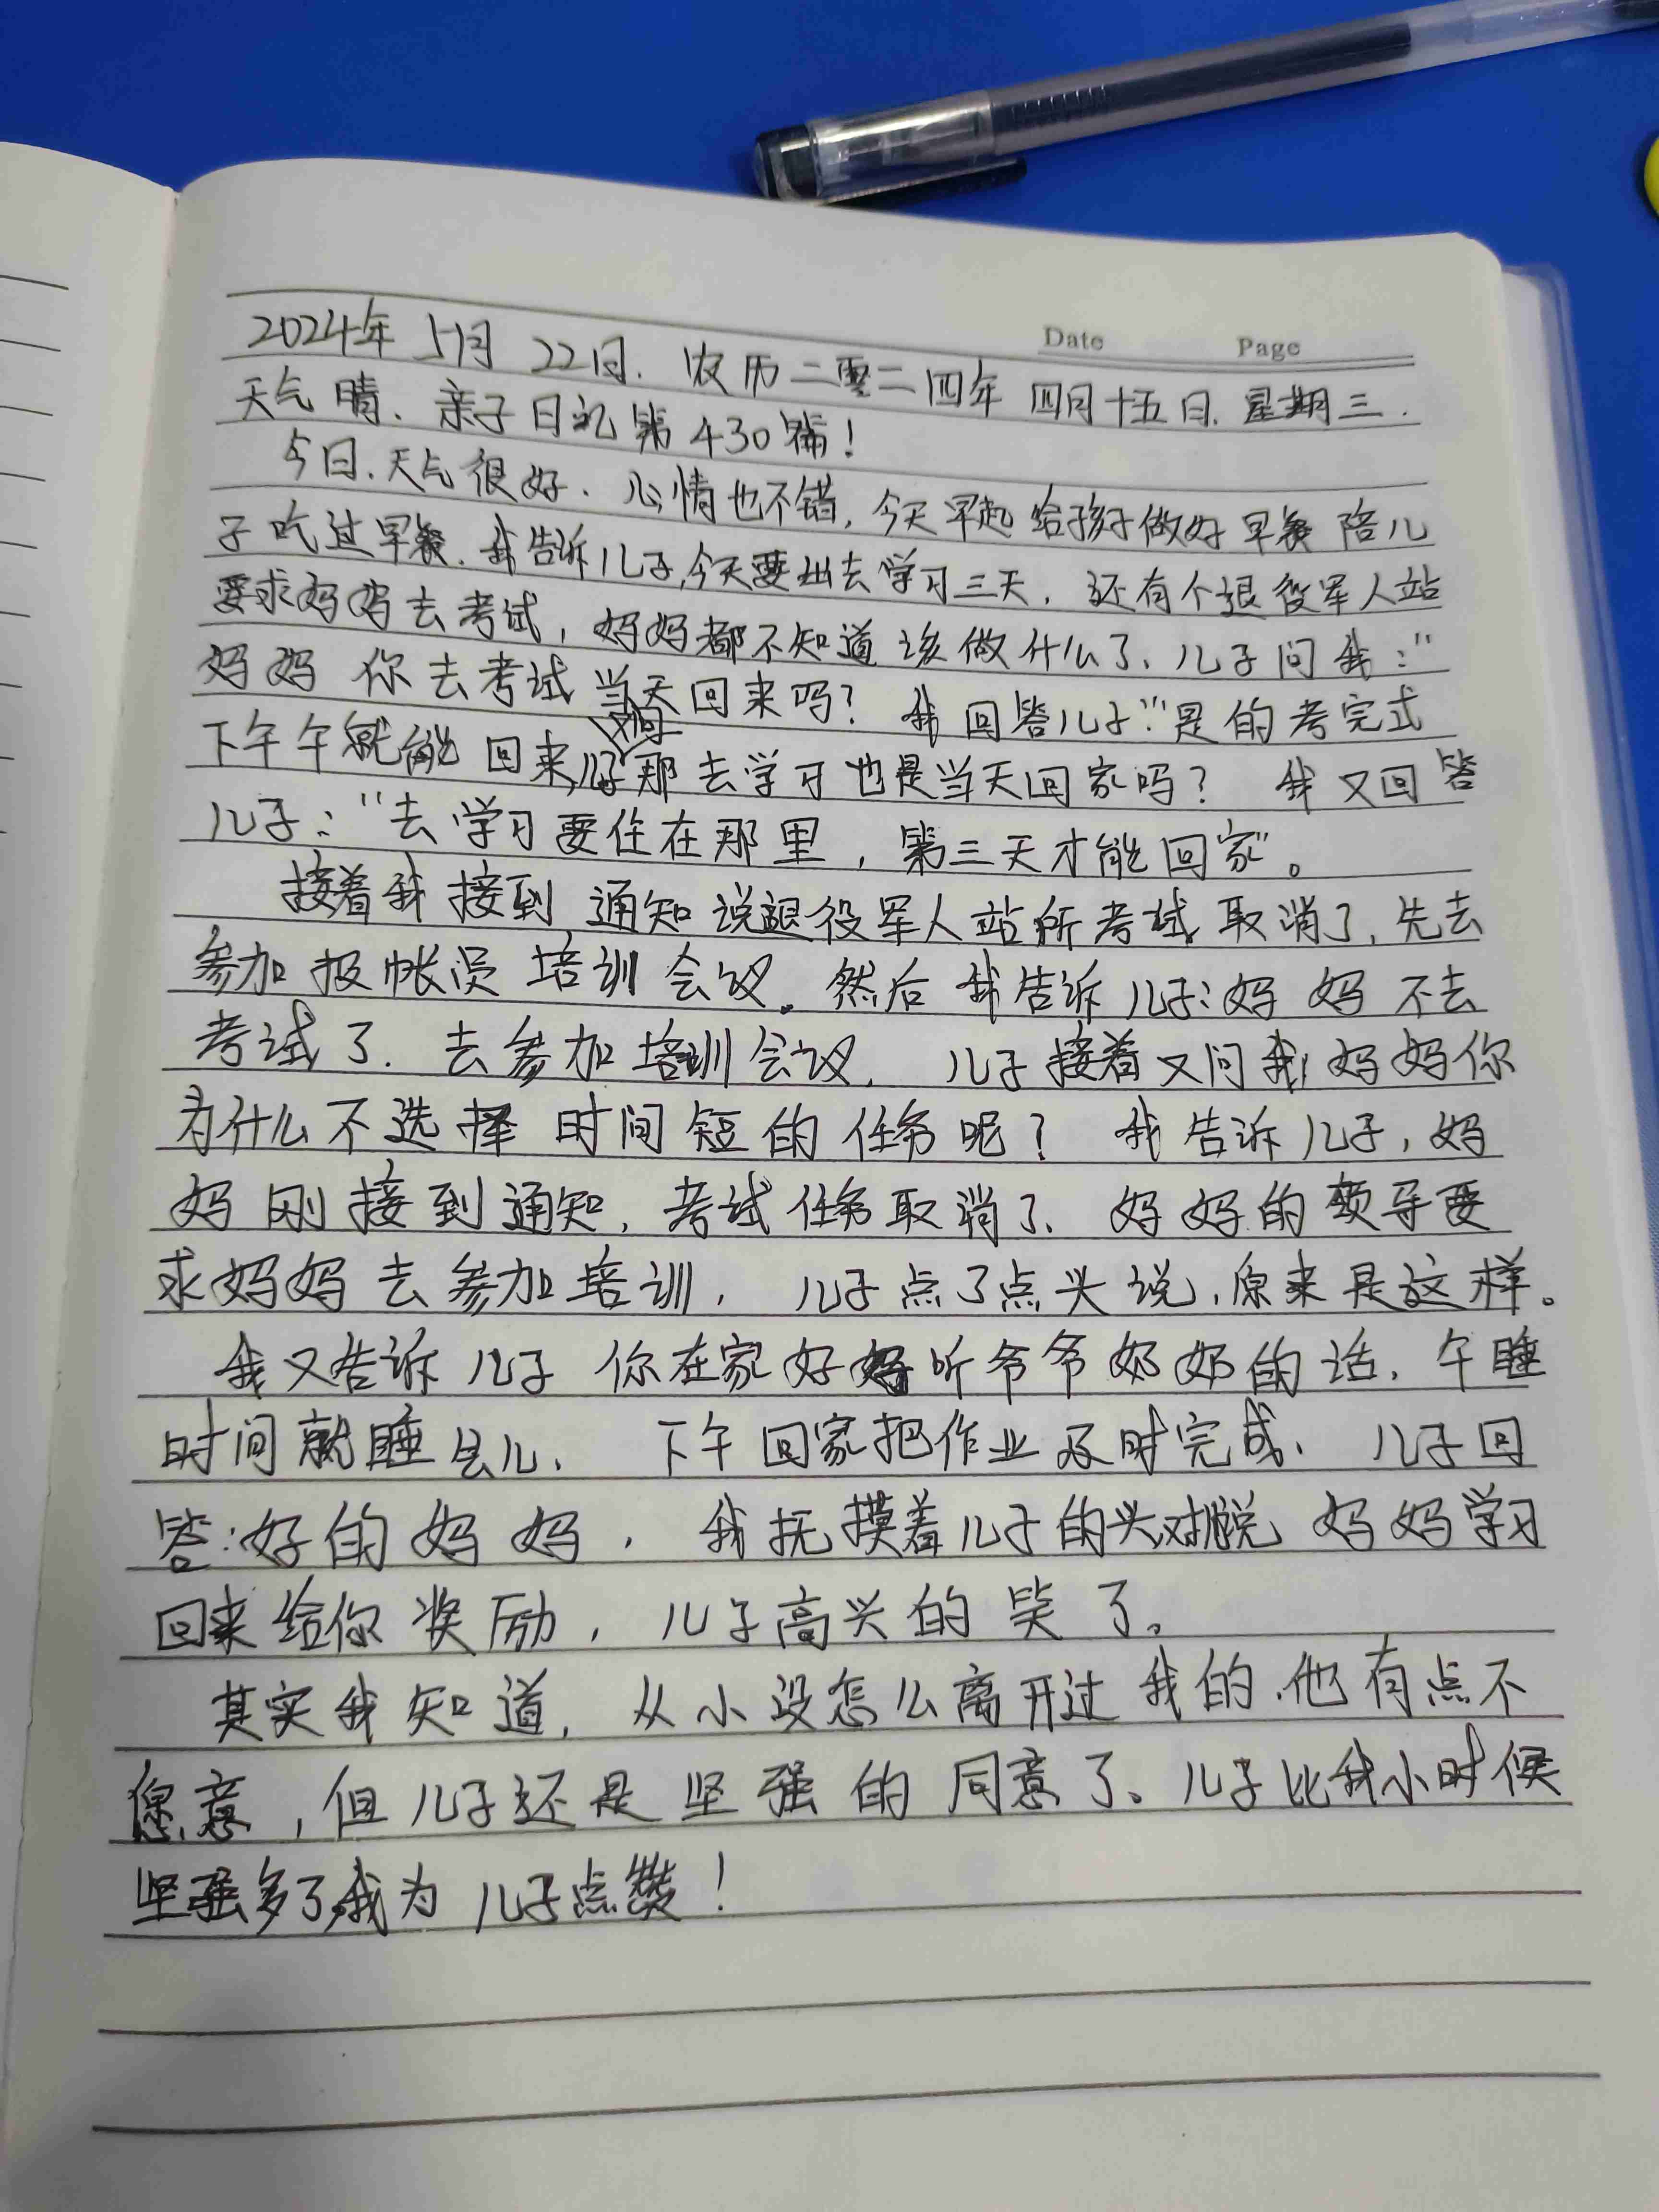 Date Page
2024年5月22日. 农历二零二四年四月十五日. 星期三.
天气晴. 亲子日记第430篇!
今日.天气很好. 心情也不错, 今天早起给孩子做好早餐 陪儿
子吃过早餐. 我告诉儿子,今天要出去学习三天, 还有个退役军人站
要求妈妈去考试, 妈妈都不知道该做什么了、儿子问我:"
妈妈 你去考试当天回来吗? 我回答儿子:"是的考完式
下午午就能回来,儿子又问那去学习也是当天回家吗? 我又回答
儿子:"去学习要住在那里, 第三天才能回家"。
接着我接到通知说退役军人站所考试取消了, 先去
参加报帐员培训会议。然后我告诉儿子:妈妈不去
考试了. 去参加培训会议, 儿子接着又问我:妈妈你
为什么不选择时间短的任务呢? 我告诉儿子, 妈
妈刚接到通知, 考试任务取消了、妈妈的领导要
求妈妈去参加培训, 儿子点了点头说, 原来是这样。
我又告诉儿子 你在家好好听爷爷奶奶的话, 午睡
时间就睡会儿、 下午回家把作业及时完成、 儿子回
答:好的妈妈, 我抚摸着儿子的头对他说 妈妈学习
回来给你奖励, 儿子高兴的笑了。
其实我知道, 从小没怎么离开过我的, 他有点不
愿意, 但儿子还是坚强的同意了、儿子比我小时候
坚强多了,我为儿子点赞!